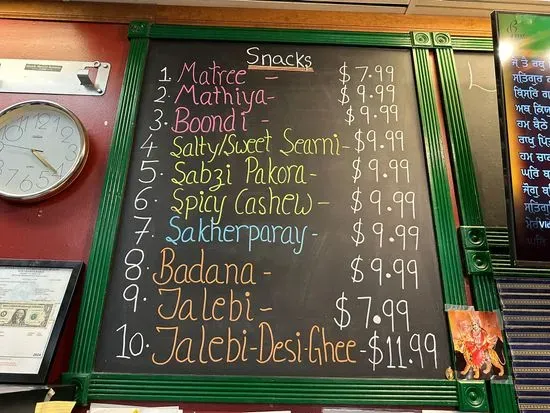 Snacks
1. Matree - $7.99
2. Mathiya- $9.99
3. Boondi - $9.99
4 Salty/Sweet Searni- $9.99
5. Sabzi Pakora- $9.99
6. Spicy Cashew- $9.99
7. Sakherparay- $9.99
8. Badana- $9.99
9. Jalebi- $7.99
10. Jalebi-Desi-Ghee-$11.99